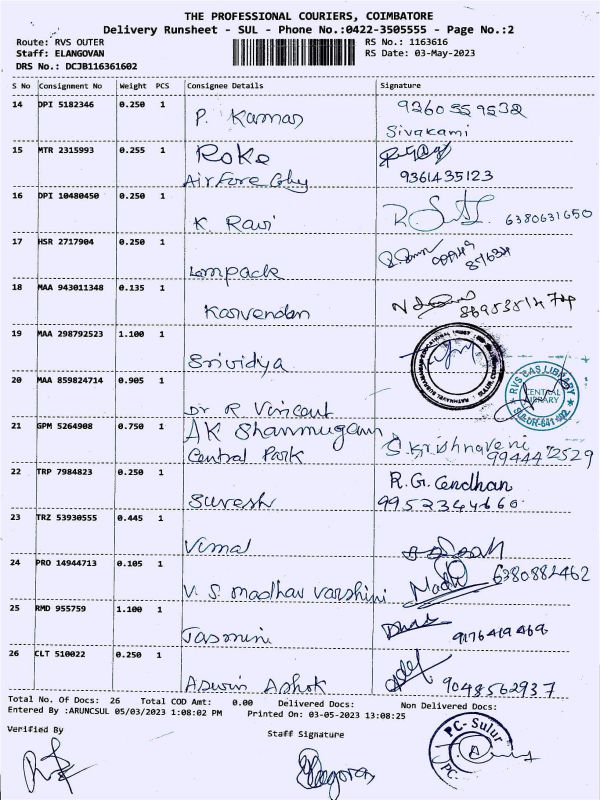 THE PROFESSIONAL COURIERS, COIMBATORE
Delivery Runsheet - SUL - Phone No.:0422-3505555 - Page No.:2
Route: RVS OUTER RS No.: 1163616
Staff: ELANGOVAN RS Date: 03-May-2023
DRS No.: DCJB116361602
S No Consignment No Weight PCS Consignee Details Signature
14 DPI 5182346 0.250 1 P. Kamar 9260559532
Sivakami
15 MTR 2315993 0.255 1 Roke
Airfore 9361435123
16 DPI 10480450 0.250 1 K. Ravi 6380631650
17 HSR 2717904 0.250 1 Lompack
18 MAA 943011348 0.135 1 Karvendan
19 MAA 298792523 1.100 1 Srividya
20 MAA 859824714 0.905 1 Dr R Vincent
RVS CAS LIBRARY
CENTRAL
LIBRARY
SULUR-641 402
21 GPM 5264908 0.750 1 AK Shanmugam S.Krishnaveni
Central Park 9944472529
22 TRP 7984823 0.250 1 Suresh R.G. Cendhan
9952344660
23 TRZ 53930555 0.445 1 Vimal
24 PRO 14944713 0.105 1 V. S. Madhav Varshini Madhi 6380882462
25 RMD 955759 1.100 1 Jasmini 9176419468
26 CLT 510022 0.250 1 Aswin Ashok 9048562937
Total No. Of Docs: 26 Total COD Amt: 0.00 Delivered Docs: Non Delivered Docs:
Entered By :ARUNCSUL 05/03/2023 1:08:02 PM Printed On: 03-05-2023 13:08:25
Verified By Staff Signature PC-Sulur
PC.